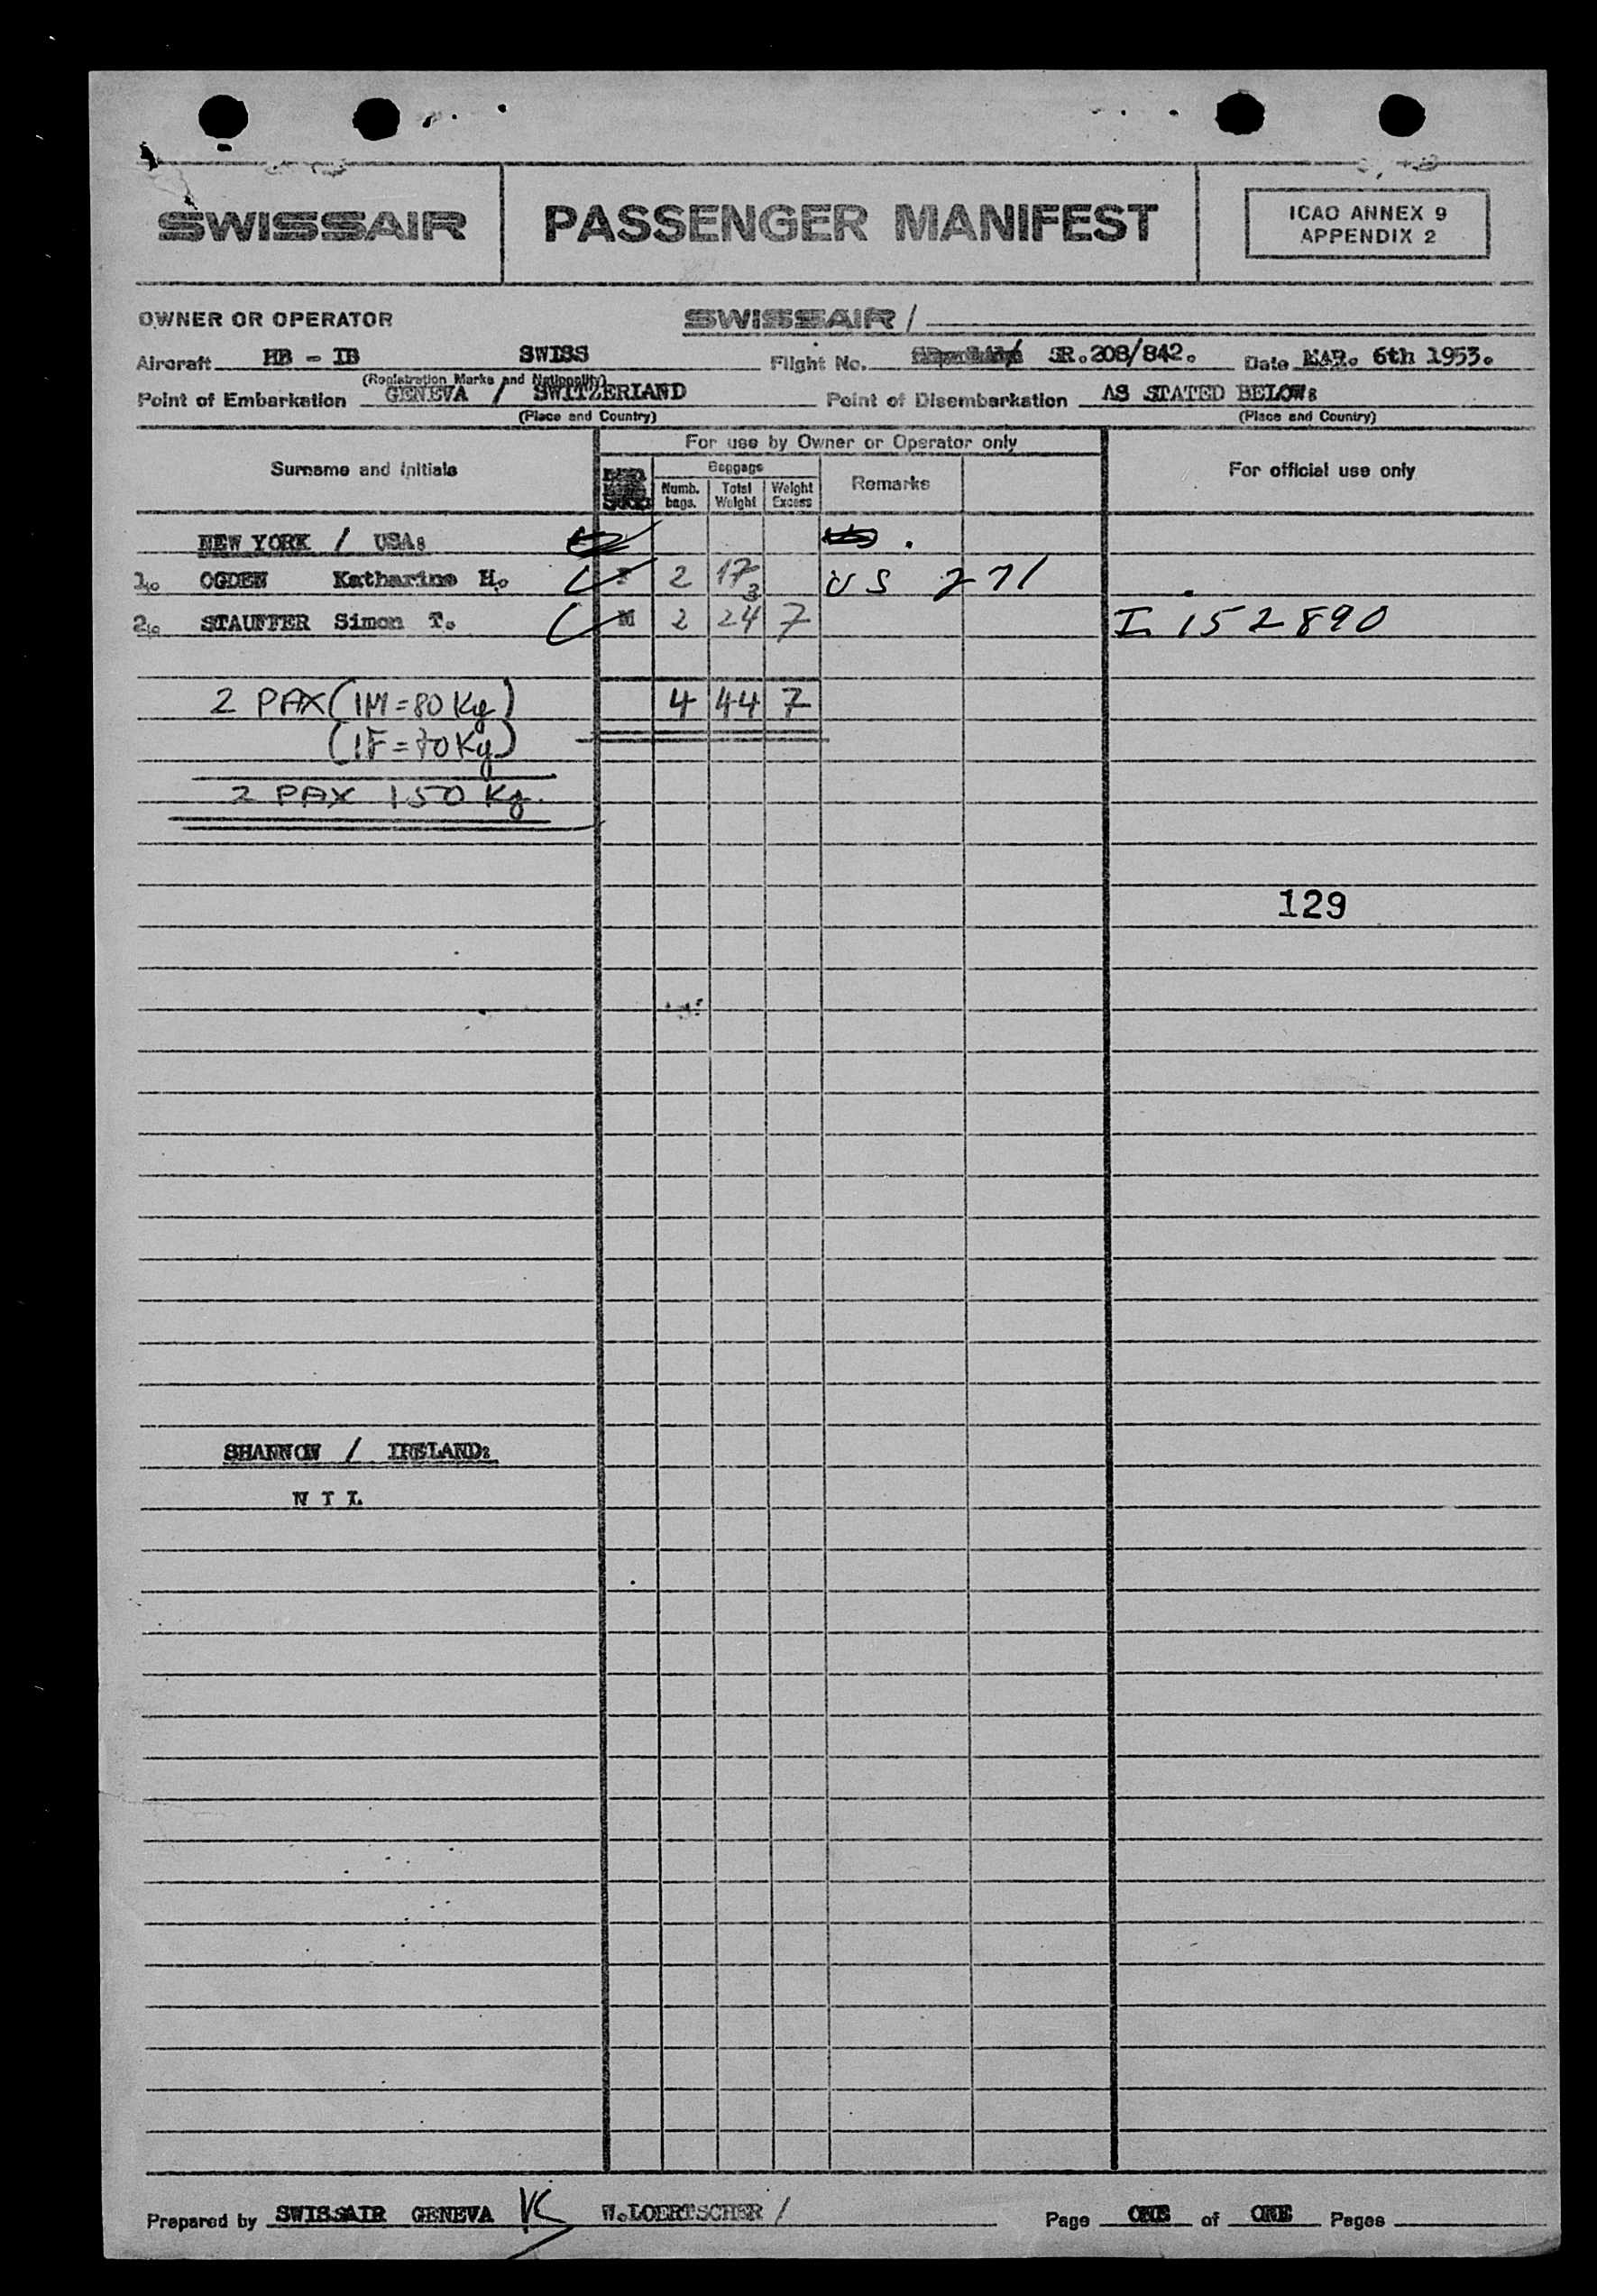 SWISSAIR PASSENGER MANIFEST ICAO ANNEX 9
APPENDIX 2
OWNER OR OPERATOR SWISSAIR /
Aircraft HB - IB SWISS Flight No. SR.208/842. Date MAR. 6th 1953.
(Registration Marks and Nationality)
Point of Embarkation GENEVA / SWITZERLAND Point of Disembarkation AS STATED BELOW:
(Place and Country) (Place and Country)
For use by Owner or Operator only
Surname and initials Baggage Remarks For official use only
Numb. bags. Total Weight Weight Excess
NEW YORK / USA:
1. OGDEN Katharine H. F 2 17 3 US 271
2. STAUFFER Simon T. M 2 24 7 I 152890
2 PAX (1M=80 Kg) 4 44 7
(1F=70Kg)
2 PAX 150 Kg.
129
SHANNON / IRELAND:
N I L
Prepared by SWISSAIR GENEVA W.LOERTSCHER / Page ONE of ONE Pages